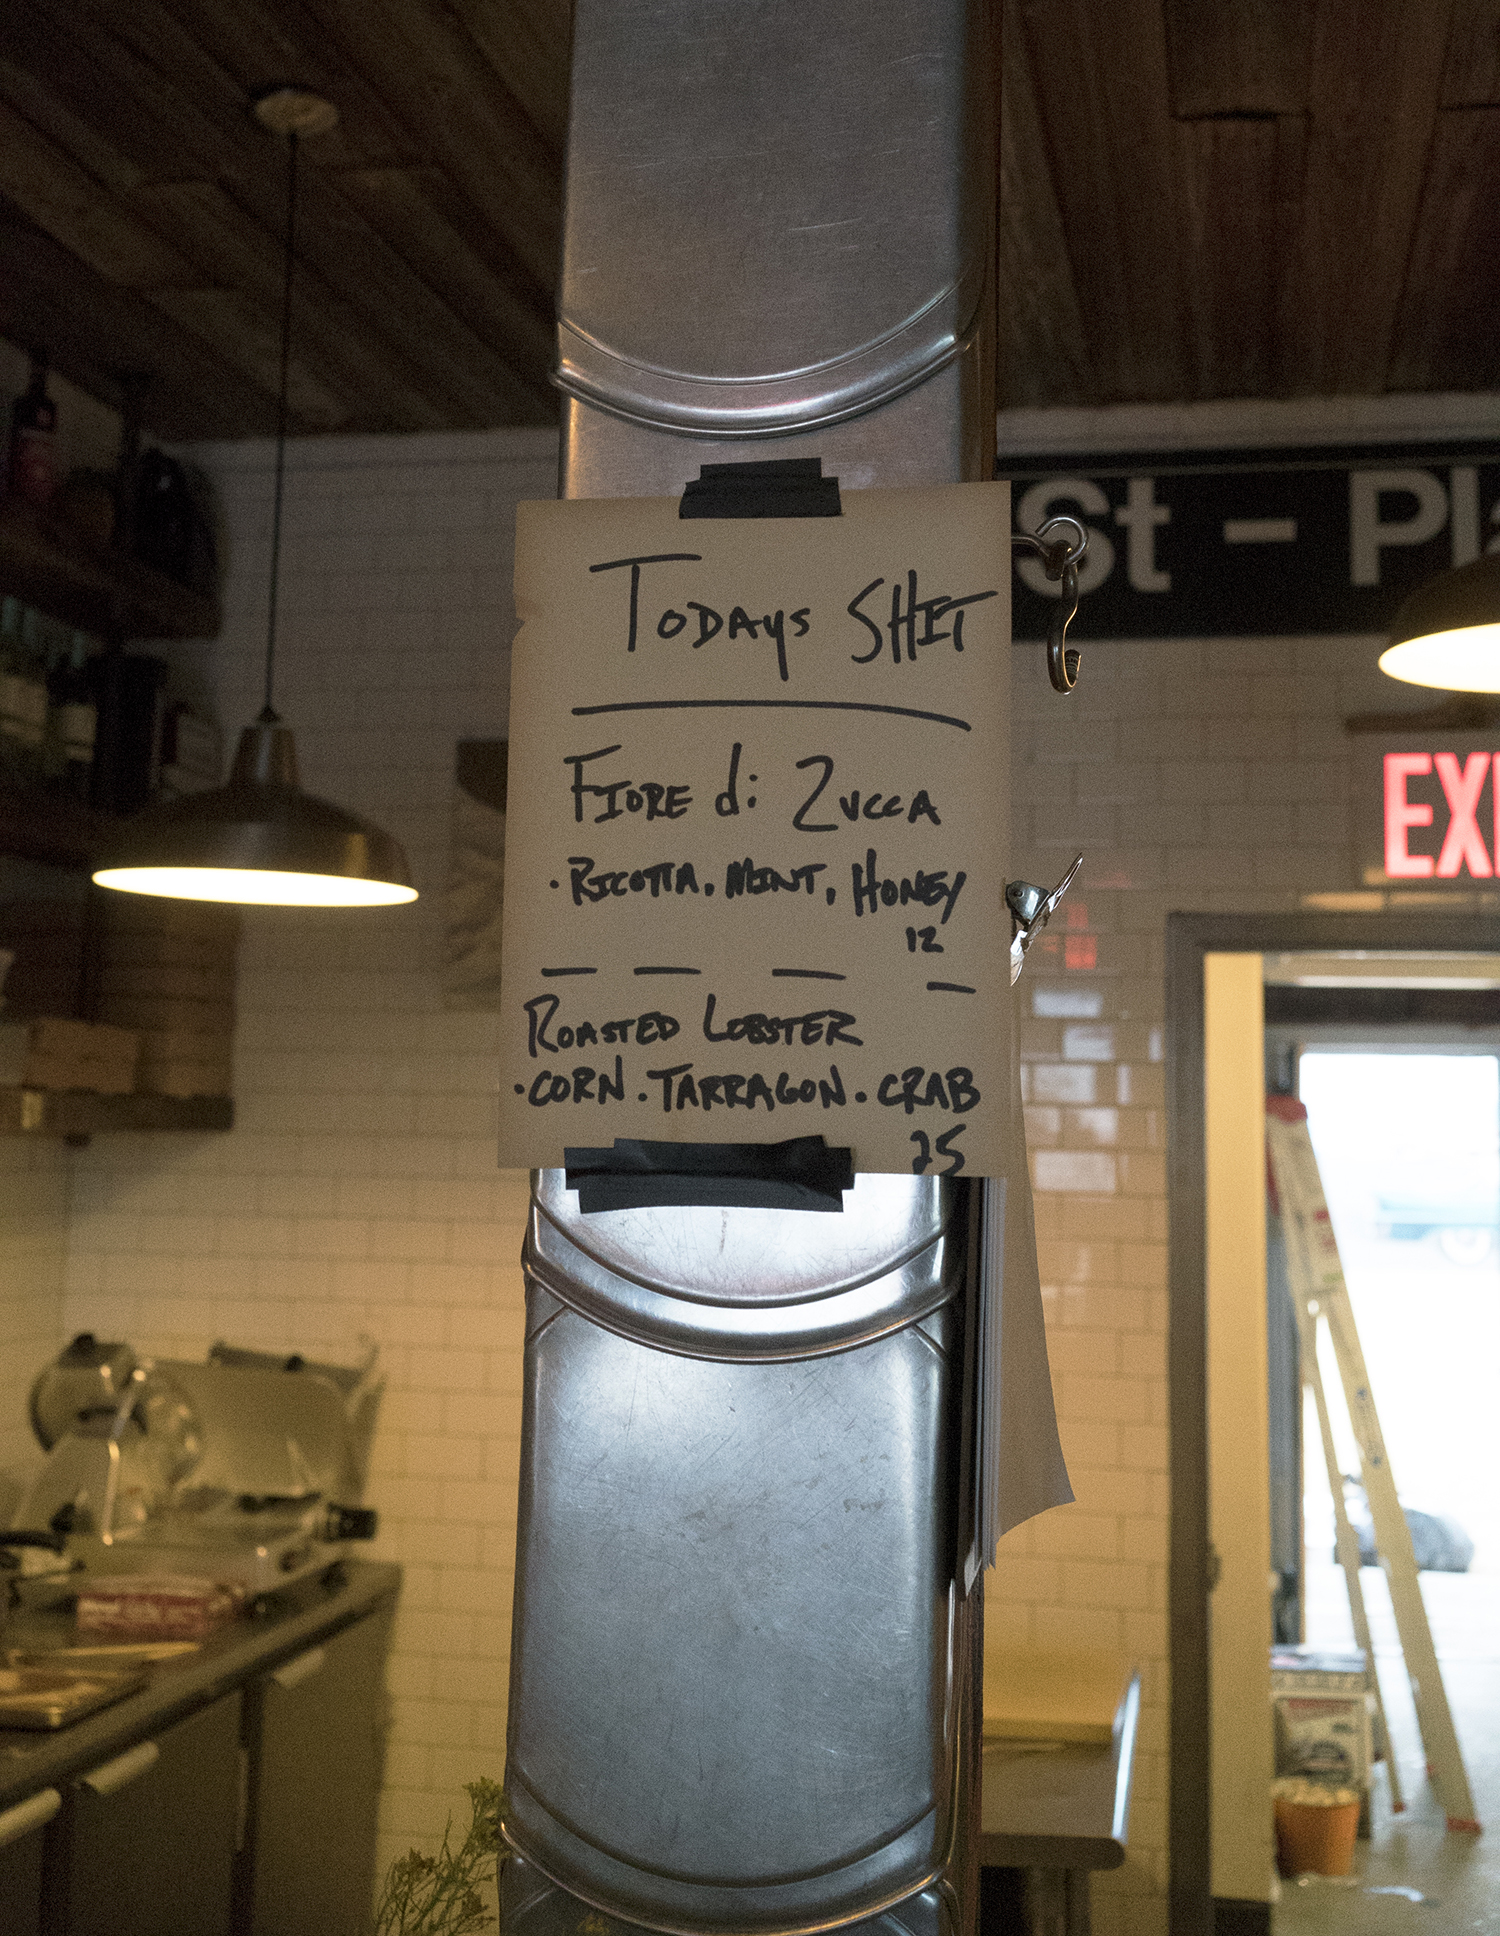 Todays SHIT
FIORE di ZUCCA
· RICOTTA, MINT, HONEY
12
ROASTED LOBSTER
· CORN · TARRAGON · CRAB
25
St – Pla
EXI